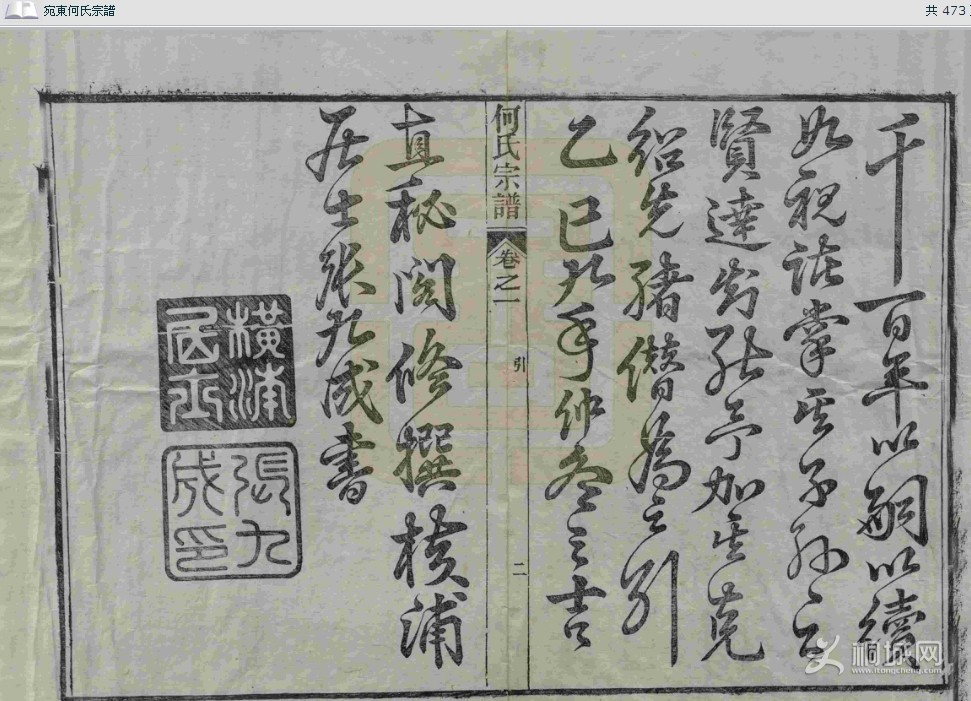 宛東何氏宗譜
共 473
千百年以嗣以續
如祝掌其子孫之
賢達能加其克
紹先緒僭為之引
乙巳九年仲冬之吉
何氏宗譜 卷之一 引 二
直秘閣修撰橫浦
居士張九成書
橫浦居士
張九成印
桐城网
www.itongcheng.com